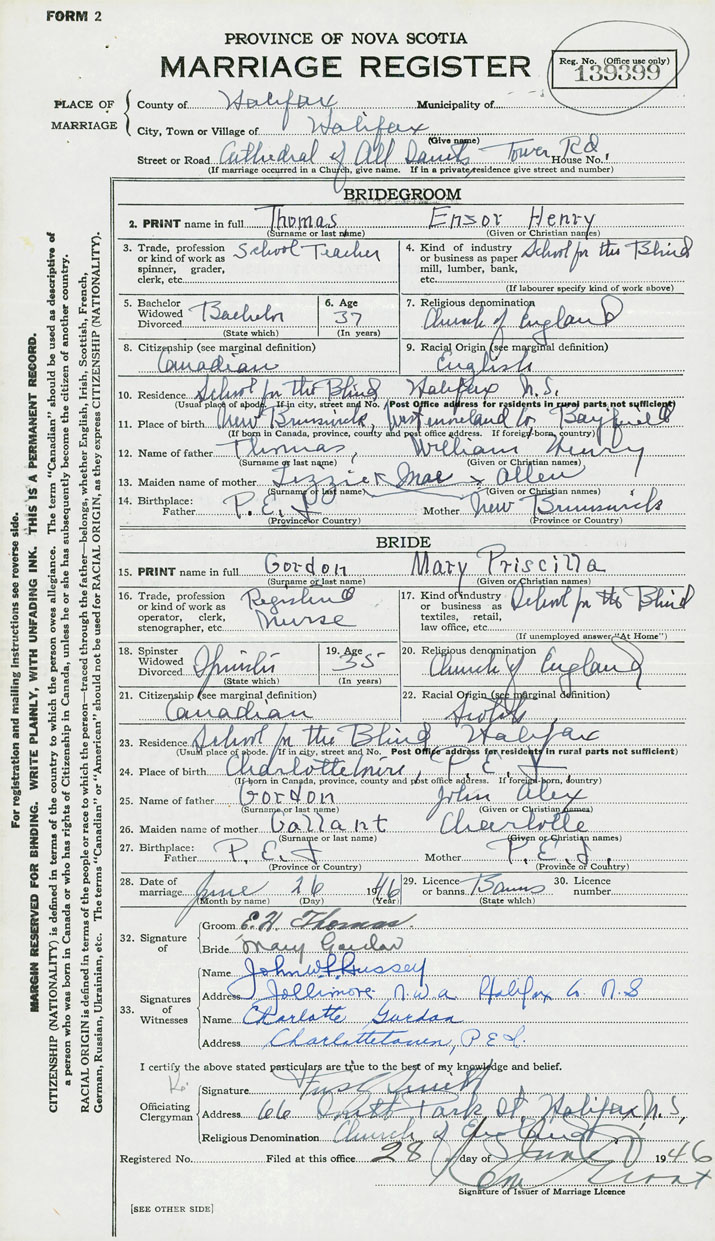 FORM 2
PROVINCE OF NOVA SCOTIA
MARRIAGE REGISTER
Reg. No. (Office use only)
139399
PLACE OF MARRIAGE
County of Halifax Municipality of
City, Town or Village of Halifax
(Give name)
Street or Road Cathedral of All Saints, Tower Rd House No.
(If marriage occurred in a Church, give name. If in a private residence give street and number)
BRIDEGROOM
2. PRINT name in full Thomas Ensor Henry
(Surname or last name) (Given or Christian names)
3. Trade, profession or kind of work as spinner, grader, clerk, etc. School Teacher
4. Kind of industry or business as paper mill, lumber, bank, etc. School for the Blind
(If labourer specify kind of work above)
5. Bachelor Widowed Divorced Bachelor
(State which)
6. Age 37
(In years)
7. Religious denomination
Church of England
8. Citizenship (see marginal definition)
Canadian
9. Racial Origin (see marginal definition)
English
10. Residence School for the Blind Halifax N.S.
(Usual place of abode. If in city, street and No. Post Office address for residents in rural parts not sufficient)
11. Place of birth New Brunswick, Westmoreland Co Bayfield
(If born in Canada, province, county and post office address. If foreign-born, country)
12. Name of father Thomas, William Henry
(Surname or last name) (Given or Christian names)
13. Maiden name of mother Lizzie Mae Allen
(Surname or last name) (Given or Christian names)
14. Birthplace: Father P.E.I Mother New Brunswick
(Province or Country) (Province or Country)
BRIDE
15. PRINT name in full Gordon Mary Priscilla
(Surname or last name) (Given or Christian names)
16. Trade, profession or kind of work as operator, clerk, stenographer, etc. Registered Nurse
17. Kind of industry or business as textiles, retail, law office, etc. School for the Blind
(If unemployed answer "At Home")
18. Spinster Widowed Divorced Spinster
(State which)
19. Age 35
(In years)
20. Religious denomination
Church of England
21. Citizenship (see marginal definition)
Canadian
22. Racial Origin (see marginal definition)
Scotch
23. Residence School for the Blind Halifax
(Usual place of abode. If in city, street and No. Post Office address for residents in rural parts not sufficient)
24. Place of birth , P.E.I.
(If born in Canada, province, county and post office address. If foreign-born, country)
25. Name of father Gordon John Alex
(Surname or last name) (Given or Christian names)
26. Maiden name of mother Gallant Charlotte
(Surname or last name) (Given or Christian names)
27. Birthplace: Father P.E.I Mother P.E.I.
(Province or Country) (Province or Country)
28. Date of marriage June 26 1946
(Month by name) (Day) (Year)
29. Licence or banns Banns
(State which)
30. Licence number
32. Signature of
Groom E. H. Thomas.
Bride Mary Gordon
33. Signatures of Witnesses
Name John W
Address Jollimore N.W.A Halifax Co. N.S
Name Charlotte Gordon
Address Charlottetown, P.E.I.
I certify the above stated particulars are true to the best of my knowledge and belief.
Officiating Clergyman
Signature
Address 66 South Park St, Halifax, N.S,
Religious Denomination Church of England
Registered No. Filed at this office 28 day of June 1946
Signature of Issuer of Marriage Licence
[SEE OTHER SIDE]
For registration and mailing instructions see reverse side.
MARGIN RESERVED FOR BINDING. WRITE PLAINLY, WITH UNFADING INK. THIS IS A PERMANENT RECORD.
CITIZENSHIP (NATIONALITY) is defined in terms of the country to which the person owes allegiance. The term "Canadian" should be used as descriptive of
a person who was born in Canada or who has rights of Citizenship in Canada, unless he or she has subsequently become the citizen of another country.
RACIAL ORIGIN is defined in terms of the people or race to which the person—traced through the father—belongs, whether English, Irish, Scottish, French,
German, Russian, Ukrainian, etc. The terms "Canadian" or "American" should not be used for RACIAL ORIGIN, as they express CITIZENSHIP (NATIONALITY).